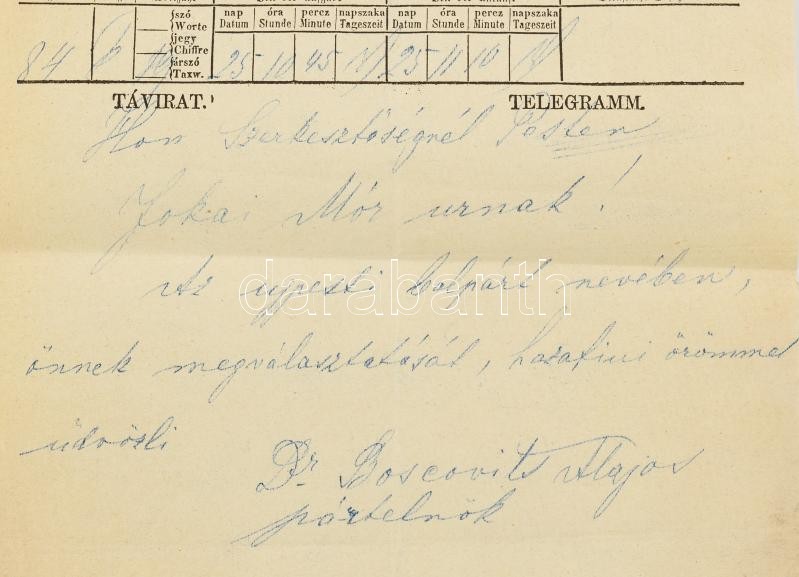 jszó nap óra percz napszaka nap óra percz napszaka
Worte Datum Stunde Minute Tageszeit Datum Stunde Minute Tageszeit
jegy
Chiffre
árszó
Taxw.
84 25 10 45 25 11 10
TÁVIRAT. TELEGRAMM.
Hon Szerkesztőségnél Pesten
Jokai Mór urnak!
Az ujpesti balpárt nevében,
önnek megválasztatását, hazafiui örömmel
üdvözli
Dr. Boscovits Alajos
pártelnök
darabanth